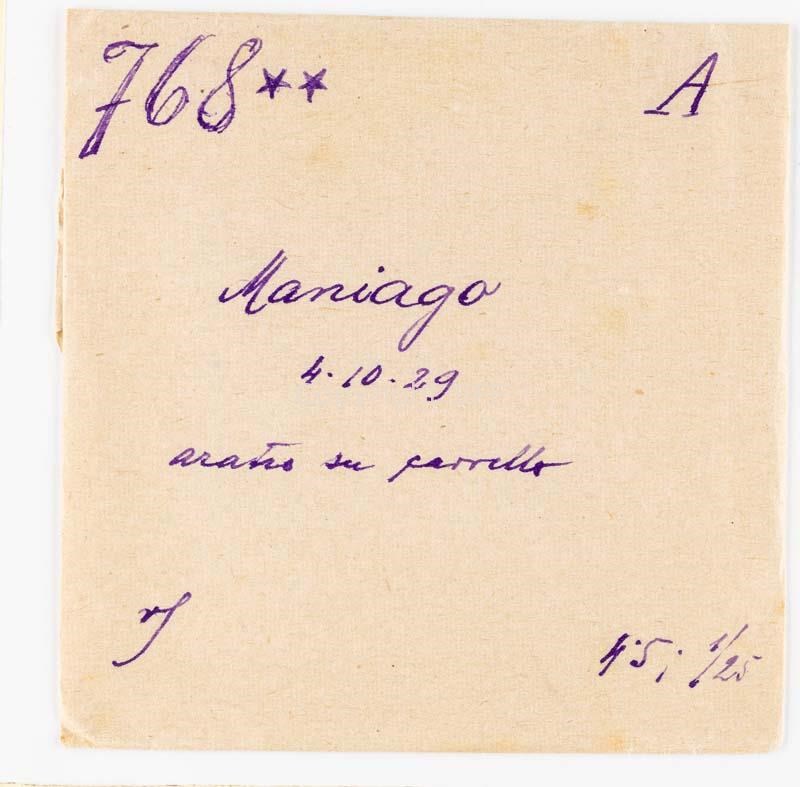 768** A
Maniago
4.10.29
aratro su carrello
4.5; 1/25